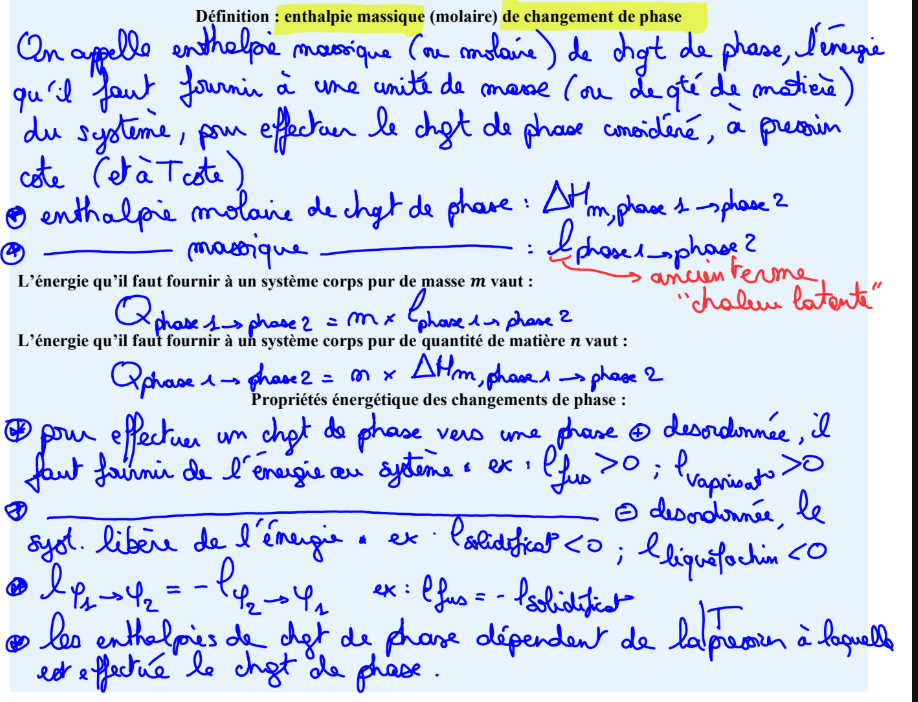 Définition : enthalpie massique (molaire) de changement de phase
On appelle enthalpie massique (ou molaire) de chgt de phase, l'énergie
qu'il faut fournir à une unité de masse (ou de qté de matière)
du système, pour effectuer le chgt de phase considéré, à pression
cste (et à T cste)
⊛ enthalpie molaire de chgt de phase : ΔHm, phase 1 → phase 2
⊛ ———— massique ———————— : ℓ phase 1 → phase 2
→ ancien terme
"chaleur latente"
L'énergie qu'il faut fournir à un système corps pur de masse m vaut :
Q phase 1 → phase 2 = m × ℓ phase 1 → phase 2
L'énergie qu'il faut fournir à un système corps pur de quantité de matière n vaut :
Q phase 1 → phase 2 = n × ΔHm, phase 1 → phase 2
Propriétés énergétique des changements de phase :
⊛ pour effectuer un chgt de phase vers une phase ⊕ desordonnée, il
faut fournir de l'énergie au système. ex : ℓ fus > 0 ; ℓ vaporisat° > 0
⊛ ———————————————— ⊖ desordonnée, le
syst. libère de l'énergie. ex : ℓ solidificat° < 0 ; ℓ liquéfaction < 0
⊛ ℓ φ1 → φ2 = - ℓ φ2 → φ1 ex : ℓ fus = - ℓ solidificat°
⊛ les enthalpies de chgt de phase dépendent de la|T pression à laquelle
est effectué le chgt de phase.